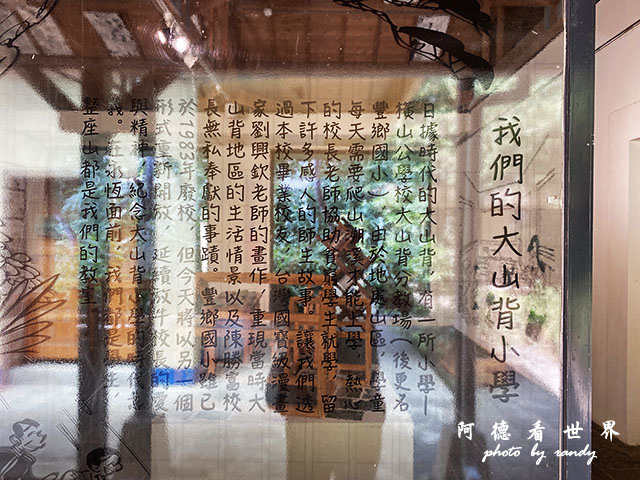 我們的大山背小學
日據時代的大山背,有一所小學—
橫山公學校大山背分教場(後更名
豐鄉國小)。由於地處山區,學童
每天需要爬山涉溪才能上學,熱心
的校長老師協助貧窮學生就學,留
下許多感人的師生故事,讓我們透
過本校畢業校友、台灣國寶級漫畫
家劉興欽老師的畫作,重現當時大
山背地區的生活情景以及陳勝富校
長無私奉獻的事蹟。豐鄉國小雖已
於1983年廢校,但今天將以另一個
形式重新開放,延續放牛校長的愛
與精神,紀念大山背小學的時代意
義。在永恆面前,我們都是學生,
整座山都是我們的教室。
阿德看世界
photo by randy